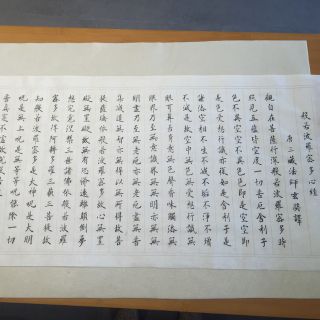 般若波羅蜜多心經
唐三藏法師玄奘譯
觀自在菩薩行深般若波羅蜜多時
照見五蘊皆空度一切苦厄舍利子
色不異空空不異色色即是空空即
是色受想行識亦復如是舍利子是
諸法空相不生不滅不垢不淨不增
不減是故空中無色無受想行識無
眼耳鼻舌身意無色聲香味觸法無
眼界乃至無意識界無無明亦無無
明盡乃至無老死亦無老死盡無苦
集滅道無智亦無得以無所得故菩
提薩埵依般若波羅蜜多故心無罣
礙無罣礙故無有恐怖遠離顛倒夢
想究竟涅槃三世諸佛依般若波羅
蜜多故得阿耨多羅三藐三菩提故
知般若波羅蜜多是大神咒是大明
咒是無上咒是無等等咒能除一切
苦真實不虛故說般